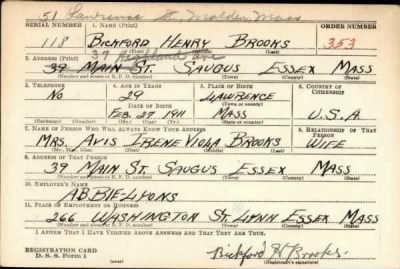 51 Lawrence St, Malden, Mass
SERIAL NUMBER 1. NAME (Print) ORDER NUMBER
118 BICKFORD HENRY BROOKS 353
(First) (Middle) (Last)
2. ADDRESS (Print) 37 Highland Ave
39 MAIN ST. SAUGUS ESSEX MASS
(Number and street or R. F. D. number) (Town) (County) (State)
3. TELEPHONE 4. AGE IN YEARS 5. PLACE OF BIRTH 6. COUNTRY OF CITIZENSHIP
NO 29 LAWRENCE
DATE OF BIRTH (Town or county)
FEB. 27 1911 MASS U.S.A.
(Exchange) (Number) (Mo.) (Day) (Yr.) (State or country)
7. NAME OF PERSON WHO WILL ALWAYS KNOW YOUR ADDRESS 8. RELATIONSHIP OF THAT PERSON
MRS. AVIS IRENE VIOLA BROOKS WIFE
(Mr., Mrs., Miss) (First) (Middle) (Last)
9. ADDRESS OF THAT PERSON
39 MAIN ST SAUGUS ESSEX MASS
(Number and street or R. F. D. number) (Town) (County) (State)
10. EMPLOYER'S NAME
A.B.BIE-LYONS
11. PLACE OF EMPLOYMENT OR BUSINESS
266 WASHINGTON ST. LYNN ESSEX MASS
(Number and street or R. F. D. number) (Town) (County) (State)
I AFFIRM THAT I HAVE VERIFIED ABOVE ANSWERS AND THAT THEY ARE TRUE.
REGISTRATION CARD
D. S. S. Form 1 Bickford H Brooks
(Registrant's signature)